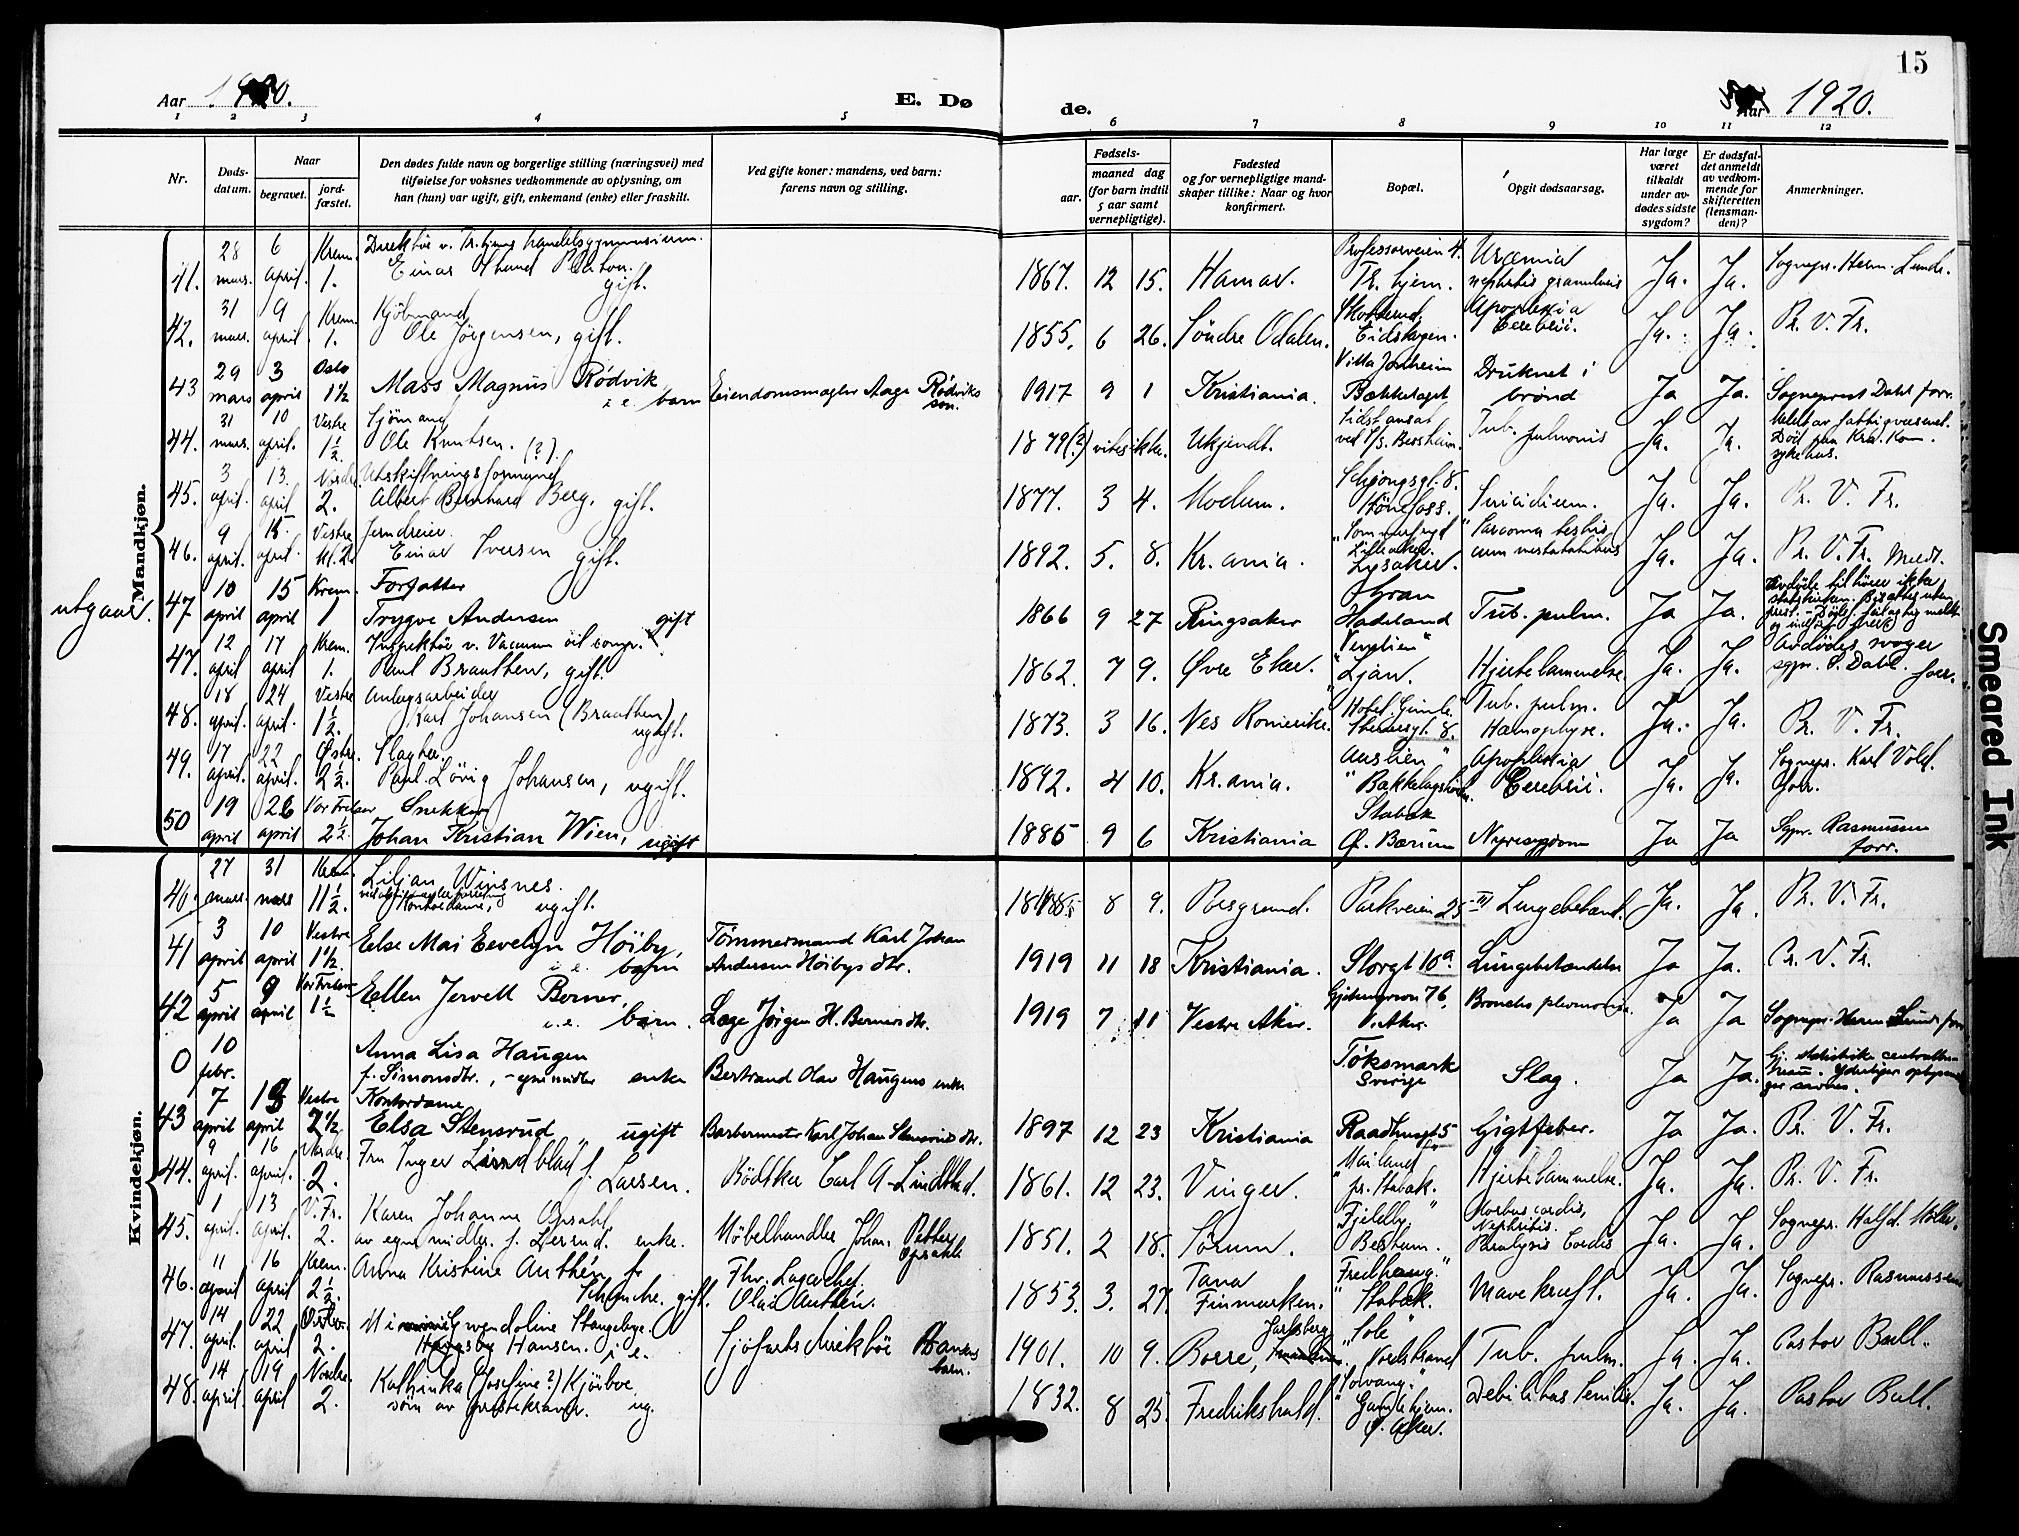 15
Aar 1920.
E. Dø
de.
Aar 1920.
1 2 3 4 5 6 7 8 9 10 11 12
Nr.
Døds-
datum.
Naar
begravet.
jord-
fæstet.
Den dødes fulde navn og borgerlige stilling (næringsvei) med
tilføielse for voksnes vedkommende av oplysning, om
han (hun) var ugift, gift, enkemand (enke) eller fraskilt.
Ved gifte koner: mandens, ved barn:
farens navn og stilling.
Fødsels-
aar.
maaned dag
(for barn indtil
5 aar samt
vernepligtige).
Fødested
og for vernepligtige mand-
skaper tillike: Naar og hvor
konfirmert.
Bopæl.
Opgit dødsaarsag.
Har læge
været
tilkaldt
under av-
dødes sidste
sygdom?
Er dødsfal-
det anmeldt
av vedkom-
mende for
skifteretten
(lensman-
den)?
Anmerkninger.
Mandkjøn.
41. 28 mars. 6 april. Krem. 1. Direktør v. Tr.hjems handelsgymnasium.
Einar gift. 1867. 12 15. Hamar. Professorveien 4. Tr. hjem. Uræmia nephritis granularis Ja. Ja. Sognepr. Herm. Lunde.
42. 31 mars. 9 april Krem. 1. Kjøbmand
Ole Jørgensen, gift. 1855. 6 26. Søndre Odalen. Skotterud, Eidskogen. Apoplexia Cerebri. Ja. Ja. Pr. V. Fr.
43 29 mars 3 april Oslo 1½ Mass Magnus Rødvik
i.e. barn Eiendomsmægler Aage Rødviks søn. 1917 9 1 Kristiania. Villa Jonheim Bækkelaget Druknet i brønd Ja Ja. Sogneprest Dahl forr.
44. 31 mars. 10 april. Vestre 1½ Sjømand
Ole Knutsen. (?). 1879(?) vites ikke. Ukjendt. sidst ansat ved D/S. Tub. pulmonis Ja. Ja. Meldt av fattigvæsenet. Død paa Kra. Kom. sykehus.
45. 3 april. 13. april Nordre 2. Utskiftningsformand
Albert Bernhard Berg. gift. 1877. 3 4. Modum. Schjongsgt. 8. Hønefoss. Suicidium. Ja. Ja. Pr. V. Fr.
46. 9 april. 15. april. Vestre kl. 2. Jerndreier.
Einar Iversen gift. 1892. 5. 8. Kr.ania. Lilleaker. Lysaker. Sarcoma testis cum metastatibus Ja. Ja. Pr. V. Fr. Meldt.
utgaar.
47 10 april 15 april Krem. 1 Forfatter
Trygve Andersen gift 1866 9 27 Ringsaker Gran Hadeland Tub. pulm. Ja Ja. Avdøde tilhører ikke statskirken.
47. 12 april 17 april Krem. 1. Inspektør v. Vacuum oil comp.
Paul Braathen, gift. 1862. 7 9. Øvre Eker. Ljan. Hjertelammelse. Ja. Ja. Avdødes svoger sgpr. S. Dahl. forr.
48. 18 april. 24 april. Vestre 1½. Anlegsarbeider
Karl Johansen (Braathen) ugift. 1873. 3 16. Nes Romerike. Hotel Gimle. Tub. pulm. Hæmophyse. Ja. Ja. Pr. V. Fr.
49. 17 april. 22 april. Østre. 2½. Slagter.
Paul Løvig Johansen, ugift. 1892. 4 10. Kr.ania. Apoplexia Cerebri. Ja. Ja. Sognepr. Karl Vold. forr.
50 19 april 26 april Vor Frelser 2½. Snekker
Johan Kristian Wien, ugift 1885 9 6 Kristiania Stabæk Ø. Bærum Nyresygdom Ja Ja Sgpr. Rasmussen forr.
Kvindekjøn.
40. 27 mars. 31 mars Krem. 11½. Liljan Winsnes.
Kontordame, ugift. 8 9. Porsgrund. Parkveien 25 III Lungebetænd. Ja. Ja. Pr. V. Fr.
41 3 april 10 april Vestre 1½. Else Mai Evelyn Høiby,
i.e. barn Tømmermand Karl Johan Andersen Høibys dtr. 1919 11 18 Kristiania. Storgt 10a. Lungebetændelse Ja Ja Pr. V. Fr.
42 5 april 9 april Vor Frelsers 1½ Ellen Jervell Berner,
u.e. barn. Læge Jørgen H. Berners dtr. 1919 7 11 Vestre Aker. V. Aker. Ja Ja Sognepr. Herm. Lunde forr.
0 10 febr. Anna Lisa Haugen
f. Simonsdtr., - egne midler enke Bertrand Olav Haugens enke Töksmark Sverige Slag. Ja Ja.
43 7 april 13 april Vestre 2½. Kontordame
Elsa Stensrud ugift Barbermester Karl Johan Stensruds dtr. 1897 12 23 Kristiania Raadhusgt 5 Gigtfeber. Ja Ja. Pr. V. Fr.
44. 9 april. 16 april. Nordre. 2. Fru Inger Lindblad f. Larsen. Bødtker Carl A. Lindblad. 1861. 12 23. Vinger. pr. Stabæk. Hjertelammelse. Ja. Ja. Pr. V. Fr.
45. 1 april. 13 april. V. Fr. 2. Karen Johanne Opsahl,
av egne midler. f. Lierud. enke. Møbelhandler Johan Petter Opsahl 1851. 2 18. Sørum. Bestum. Morbus cordis, Nephritis. Paralysis Cordis Ja. Ja. Sognepr. Halfd. Møller.
46. 11 april 16 april Krem. 2½. Anna Kristine Anthén f.
Schanche. gift. Fhv. Lagerchef. Olaf Anthén. 1853. 3. 27. Tana Finmarken. "Fredhaug." Stabæk. Mavekræft. Ja. Ja. Sognepr. Rasmussen
47. 14 april. 22 april 2. Gwendoline Stangebye.
Hansen. i e. Sjøfartsdirektør Hansens barn. 1901. 10 9. Borre, Jarlsberg "Sole" Nordstrand Tub. pulm. Ja. Ja. Pastor Bull.
48. 14 april. 19 april Nordre. 2. Kathinka (Josefine?) Kjørboe
ug. 1832. 8 25. Fredrikshald. "Solvang." Gamlehjem. Ø. Aker. Debilitas senilis. Ja. Ja. Pastor Bull.
Smeared Ink